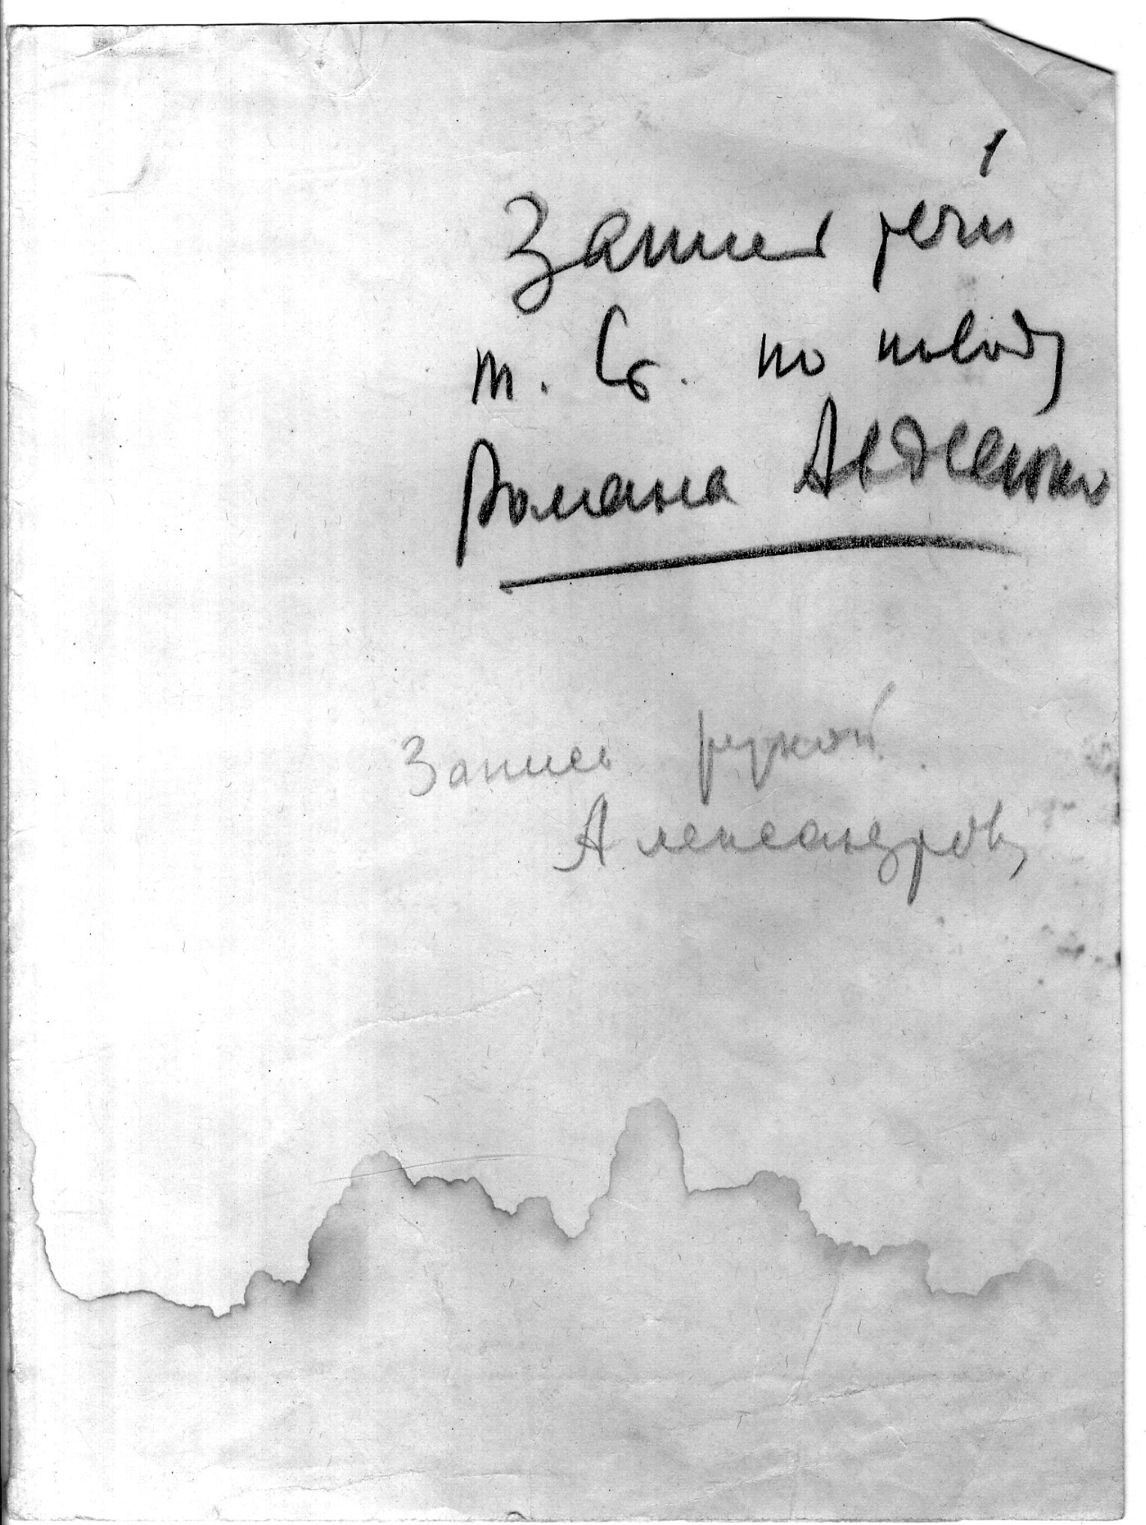 1
Запись речи
т. Ст. по поводу
Романа Авдеенко
Запись рукой
Александрова